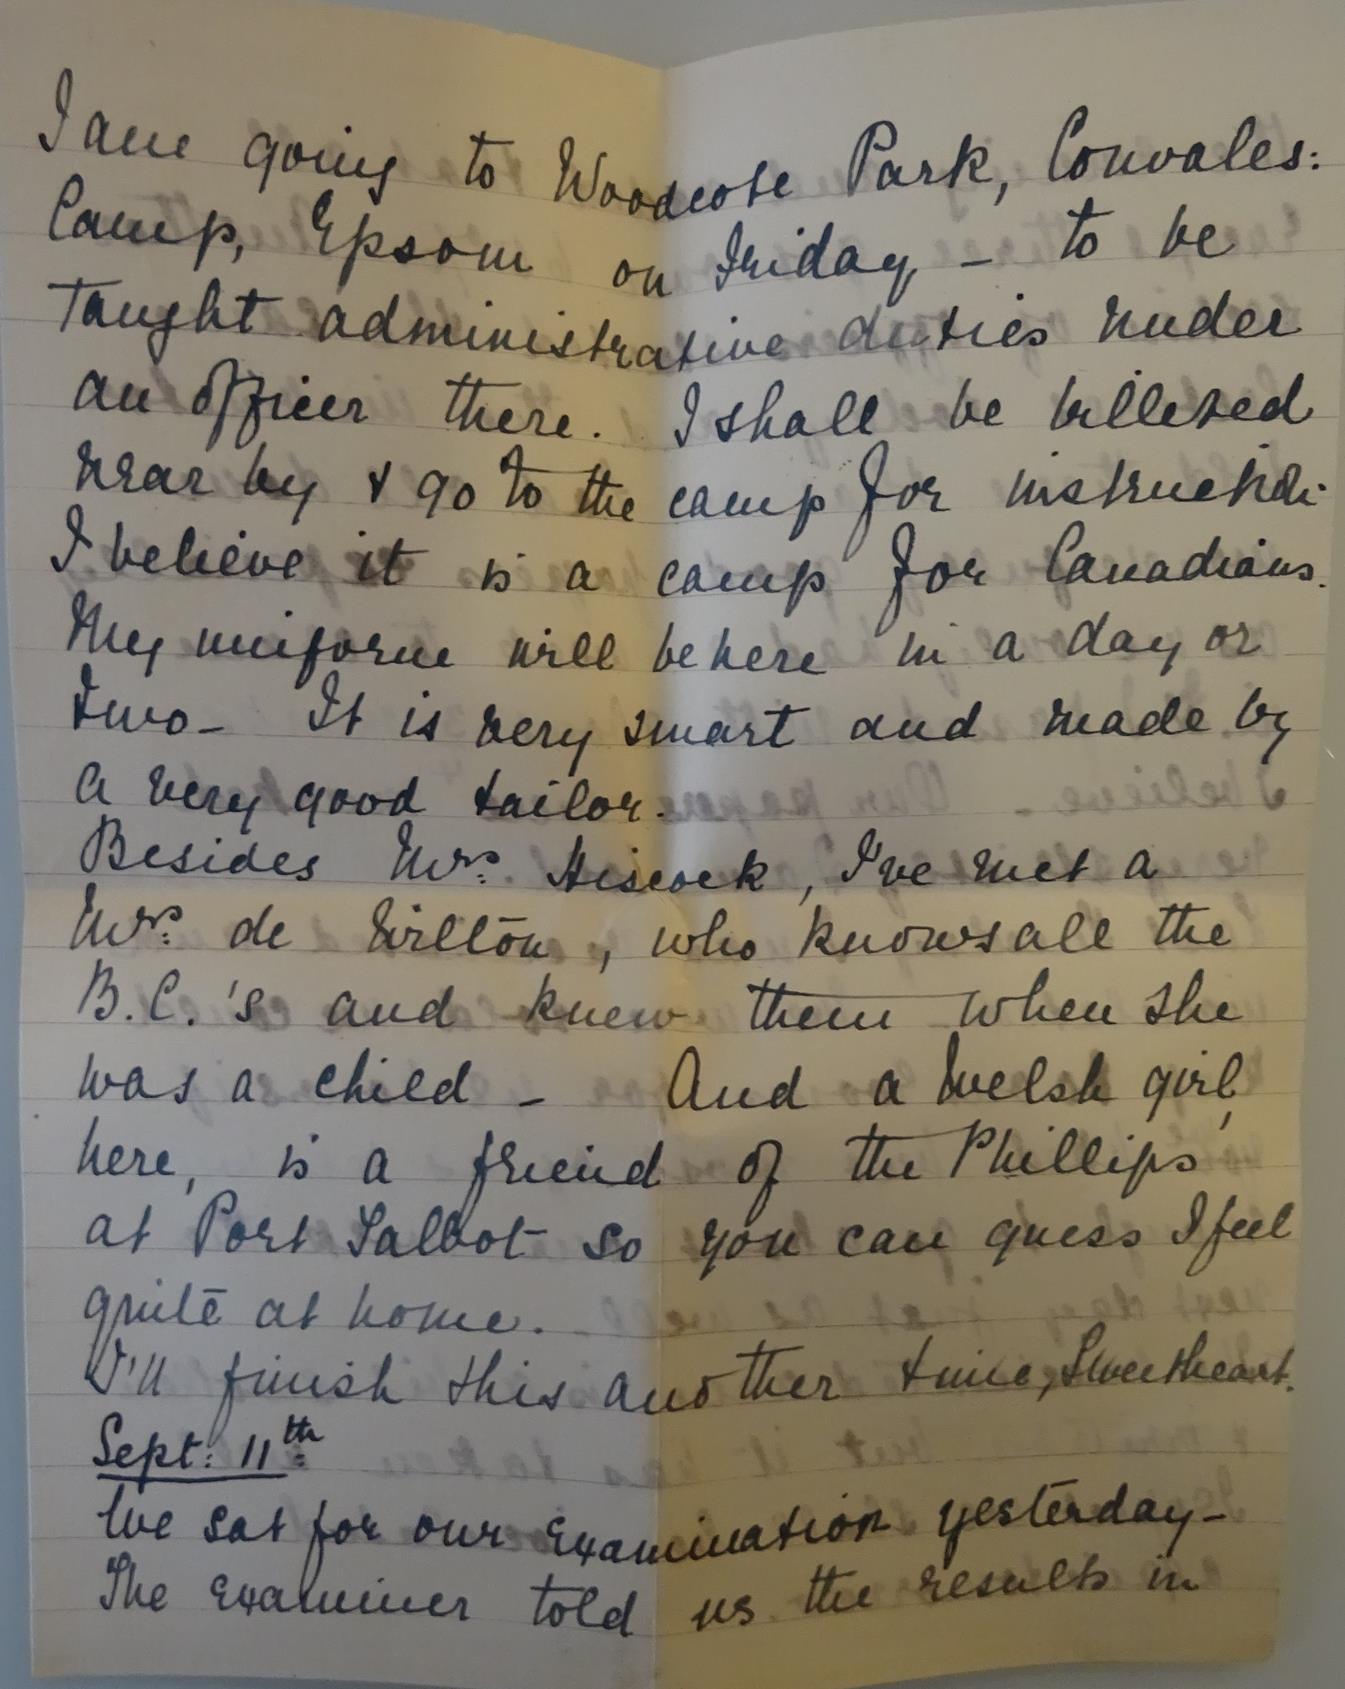 I am going to Woodcote Park, Convales:
Camp, Epsom on Friday, – to be
taught administrative duties under
an officer there. I shall be billeted
near by & go to the camp for instruction.
I believe it is a camp for Canadians.
My uniform will be here in a day or
two – It is very smart and made by
a very good tailor.
Besides Mrs. Hiscock, I've met a
Mrs. de Wilton, who knows all the
B.C.'s and knew them when she
was a child – And a Welsh girl,
here, is a friend of the Phillips
at Port Talbot so you can guess I feel
quite at home.
I'll finish this another time, Sweetheart.
Sept: 11th
We sat for our examination yesterday –
The examiner told us the results in